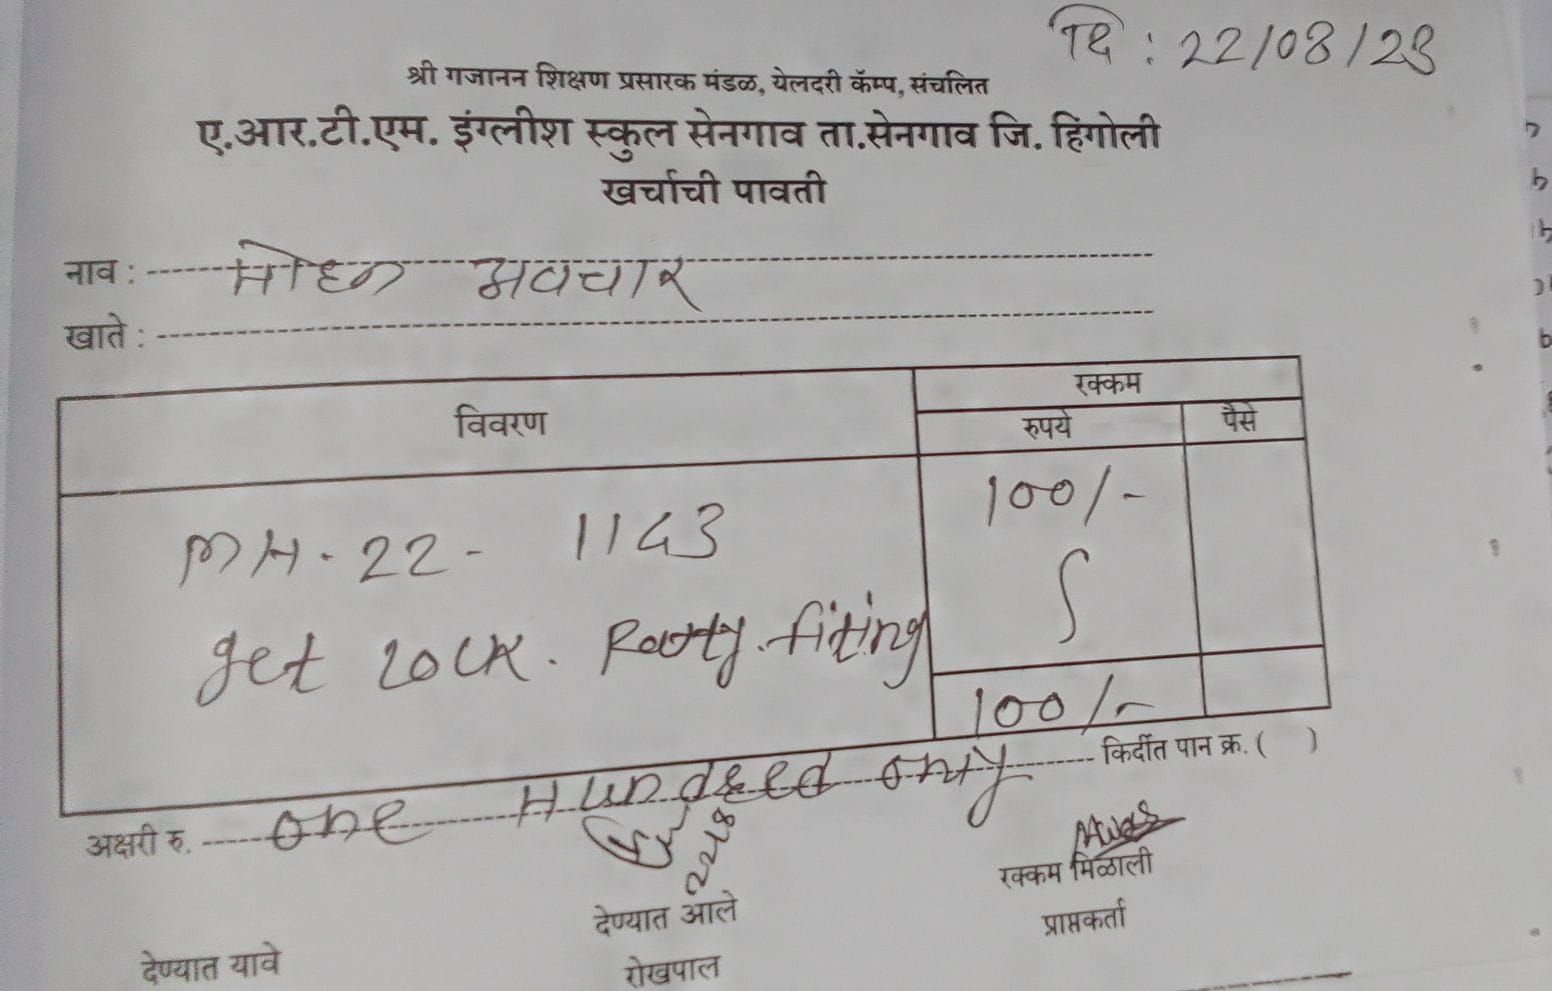 दि : 22/08/23
श्री गजानन शिक्षण प्रसारक मंडळ, येलदरी कॅम्प, संचलित
ए.आर.टी.एम. इंग्लीश स्कुल सेनगाव ता.सेनगाव जि. हिंगोली
खर्चाची पावती
नाव : मोहन अवचार
खाते :
विवरण रक्कम
रुपये पैसे
MH-22- 1143 100/-
get Lock. fiting
100/-
अक्षरी रु. one Hundred only किर्दीत पान क्र. ( )
रक्कम मिळाली
देण्यात आले प्राप्तकर्ता
देण्यात यावे रोखपाल